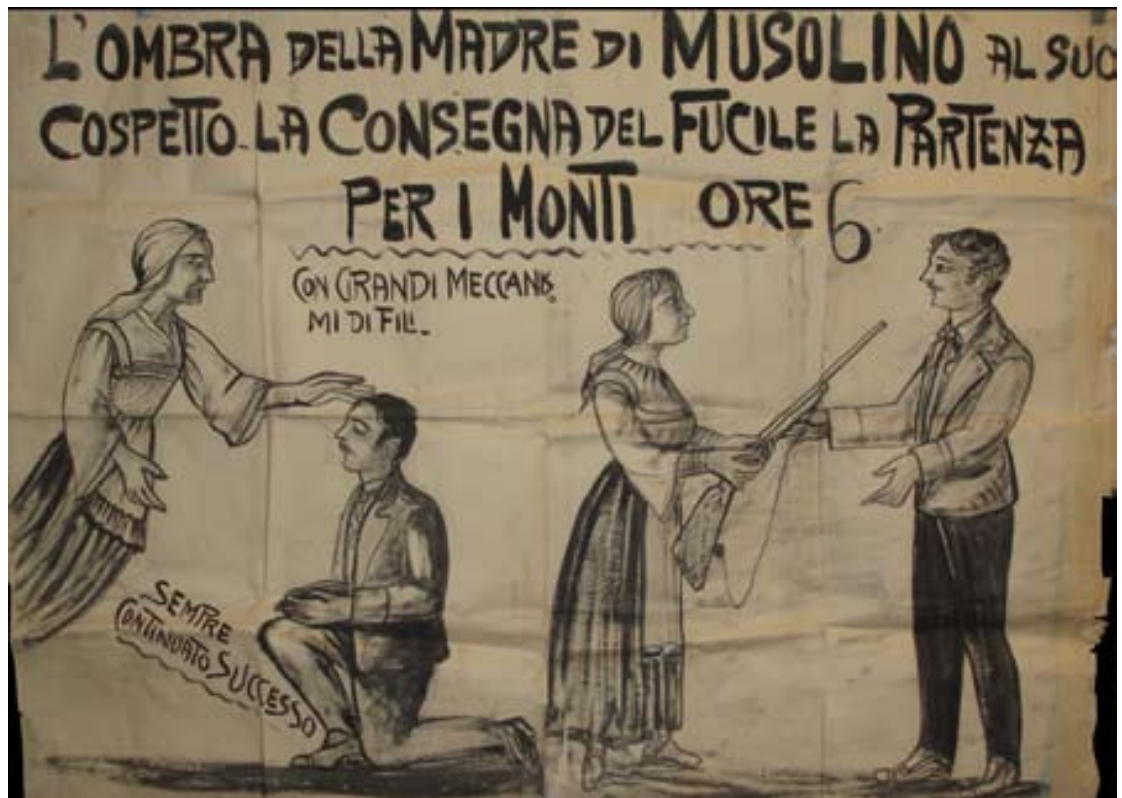 L'OMBRA DELLA MADRE DI MUSOLINO AL SUO
COSPETTO - LA CONSEGNA DEL FUCILE LA PARTENZA
PER I MONTI ORE 6
CON GRANDI MECCANIS
MI DI FILI -
SEMPRE
CONTINUATO SUCCESSO